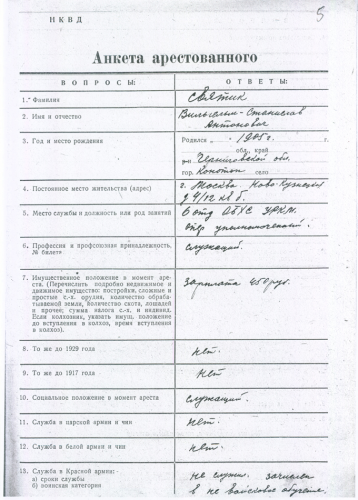 5
НКВД
Анкета арестованного
ВОПРОСЫ:
ОТВЕТЫ:
1. Фамилия
Святик
2. Имя и отчество
Вильгельм-Станислав
Антонович
3. Год и место рождения
Родился 1905 г.
обл., край
Черниговской обл.
гор. Конотоп село
4. Постоянное место жительства (адрес)
г. Москва. Ново-Кузнецкая
д 4/12 кв 6.
5. Место службы и должность или род занятий
6 отд ОБХС УРКМ.
опер уполномоченный.
6. Профессия и профсоюзная принадлежность,
№ билета
служащий.
7. Имущественное положение в момент аре-
ста. (Перечислить подробно недвижимое и
движимое имущество: постройки, сложные и
простые с.-х. орудия, количество обрабаты-
ваемой земли, количество скота, лошадей
и прочее; сумма налога с.-х. и индивид.
Если колхозник, указать имущ. положение
до вступления в колхоз, время вступления
в колхоз).
зарплата 450 рул.
8. То же до 1929 года
нет.
9. То же до 1917 года
нет
10. Социальное положение в момент ареста
служащий.
11. Служба в царской армии и чин
нет.
12. Служба в белой армии и чин
нет.
13. Служба в Красной армии:
а) сроки службы
б) воинская категория
не служил. зачислен
в не войсковое обучение.